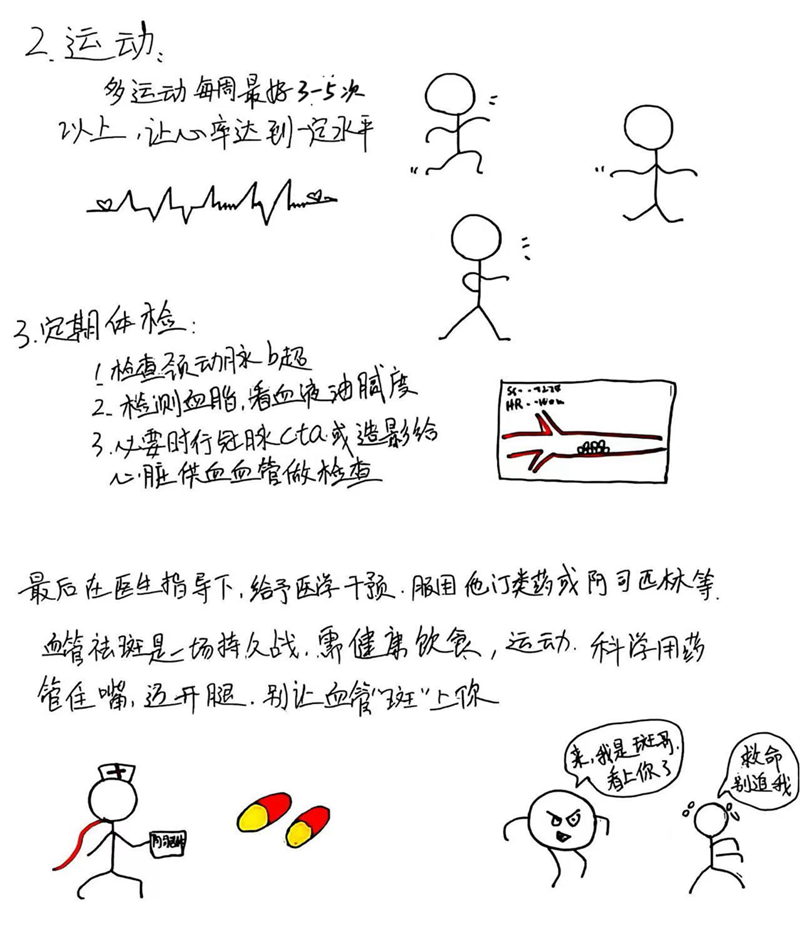 2.运动:
多运动每周最好3-5次
以上,让心率达到一定水平
3.定期体检:
1.检查颈动脉b超
2.检测血脂,看血液油腻度
3.必要时行冠脉cta或造影给
心脏供血血管做检查
HR
最后在医生指导下,给予医学干预.服用他汀类药或阿司匹林等.
血管祛斑是一场持久战.需健康饮食,运动.科学用药
管住嘴,迈开腿.别让血管"斑"上你
来,我是斑哥.
看上你了
救命
别追我
阿司匹林